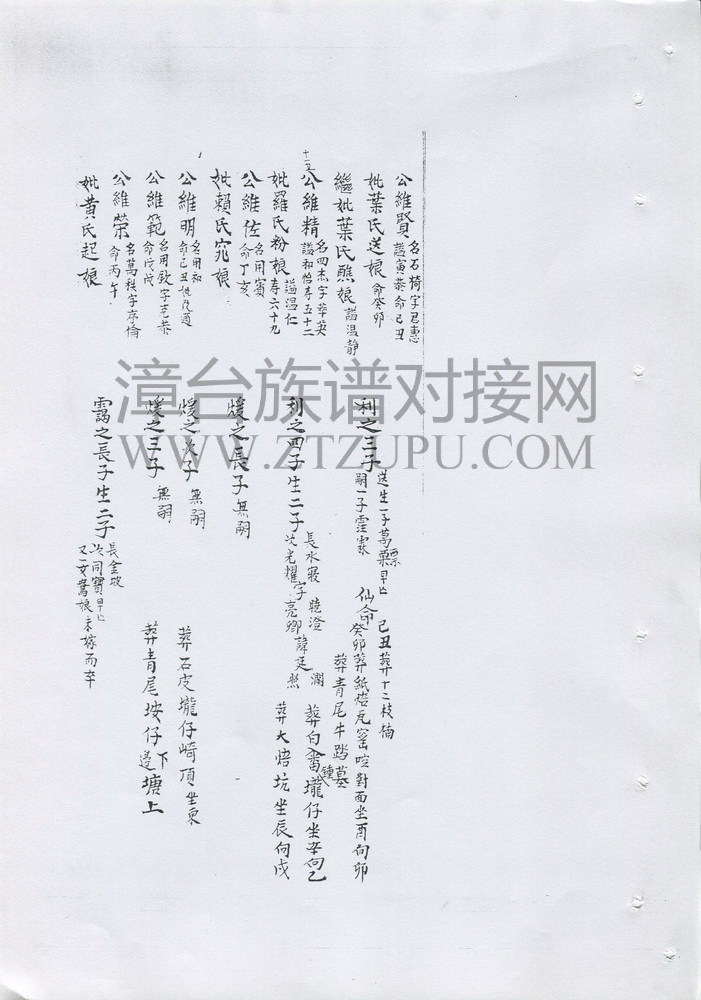 公維賢 名石椅字君惠 諡寅恭命己丑
妣葉氏送娘 命癸卯
繼妣葉氏聽娘 諡温静
十一五
公維精 名四杰字華英 諡和怡寿五十二
妣羅氏粉娘 諡温仁 寿六十九
公維佐 名用賓 命丁亥
妣賴氏宛娘
公維明 名用和 命己丑
公維範 名用欽字克恭 命戊戌
公維榮 名萬科字序倫 命丙午
妣黄氏起娘
利之三子 送生一子萬粟早亡 嗣一子霑霖
利之四子生二子 長水寢 曉澄 次光耀字亮卿諱廷
煖之長子 無嗣
煖之次子 無嗣
煖之三子 無嗣
靄之長子生二子 長金坡 次同寶早亡 又一女鶯娘未嫁而卒
仙命 己丑葬十二枝
癸卯葬紙焙瓦窑 對面坐酉向卯
葬青尾牛踏墓
葬白番壠仔坐辛向乙
葬大焙坑坐辰向戌
葬石皮壠仔崎頂坐東
葬青尾垵仔下邊塘上
漳台族谱对接网
WWW.ZTZUPU.COM